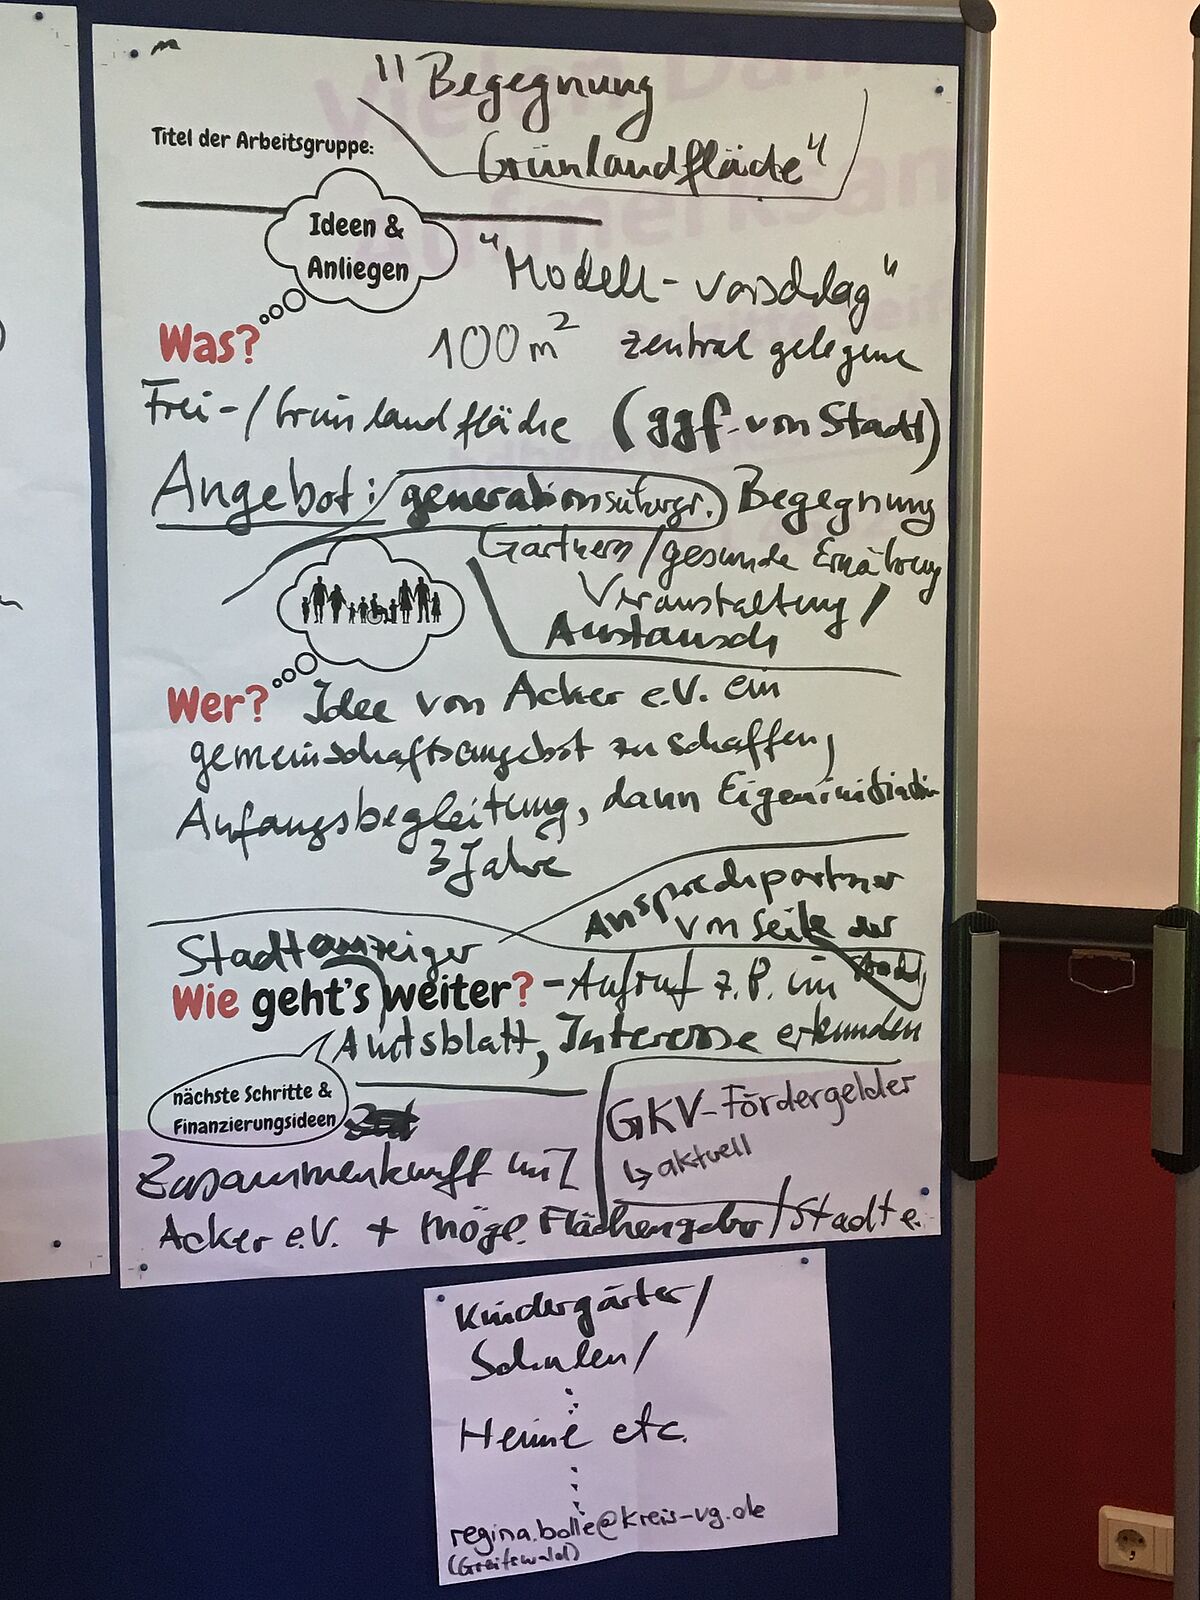 "Begegnung
Titel der Arbeitsgruppe:
Grünlandfläche"
Ideen &
Anliegen
"Modell-vorschlag"
Was?
100m² zentral gelegene
Frei-/Grünlandfläche (ggf. von Stadt)
Angebot: generationsübergr. Begegnung
Gärtnern/gesunde Ernährung
Veranstaltung/
Austausch
Wer? Idee von Acker e.V. ein
gemeinschaftsangebot zu schaffen,
Anfangsbegleitung, dann Eigeninitiative
3 Jahre
Ansprechpartner
von Seite der
Stadt
Stadtanzeiger
Wie geht's weiter? - Aufruf z.B. im
Amtsblatt, Interesse erkunden
nächste Schritte &
Finanzierungsideen
GKV-Fördergelder
↳ aktuell
Zusammenkunft mit
Acker e.V. + mögl. Flächengeber/Stadt e.
Kindergärten/
Schulen/
Heime etc.
regina.bolle@kreis-vg.de
(Greifswald)